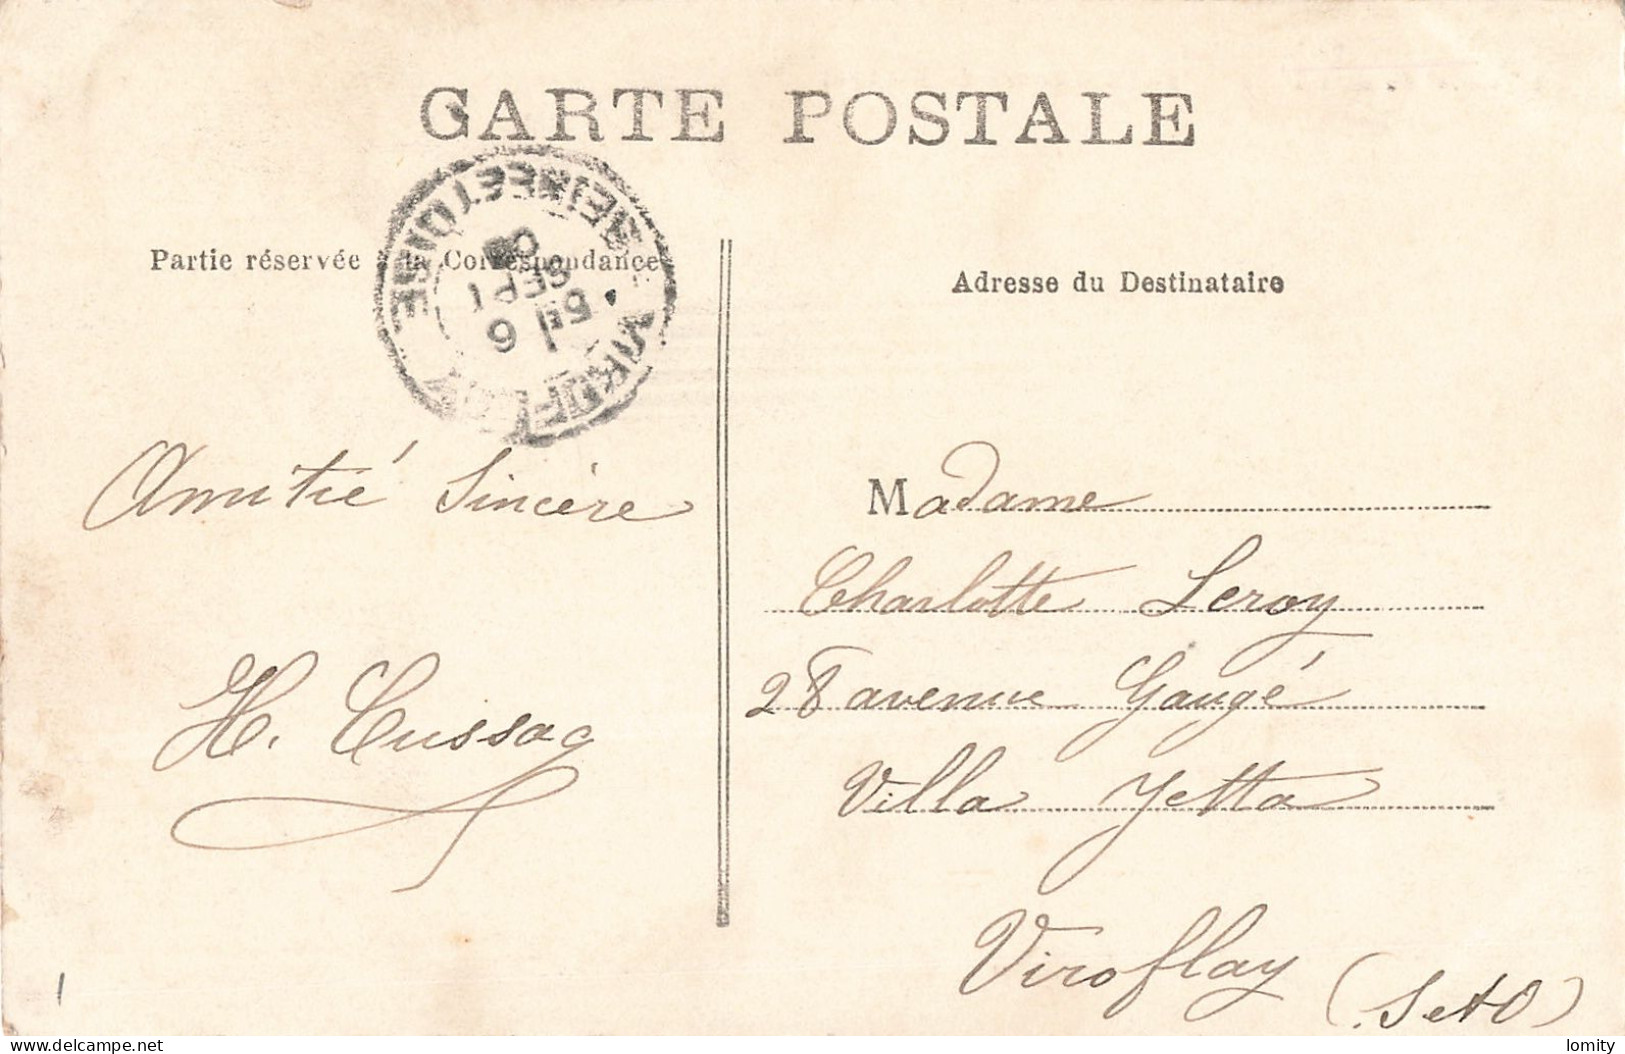 CARTE POSTALE
Partie réservée à la Correspondance
Adresse du Destinataire
VIROFLAY
SEINE ET OISE
6
SEPT
08
Amitié Sincère
H. Cussac
Madame
Charlotte Leroy
28 avenue Gaugé
Villa Yetta
Viroflay (S et O)
1
delcampe.net
lomity